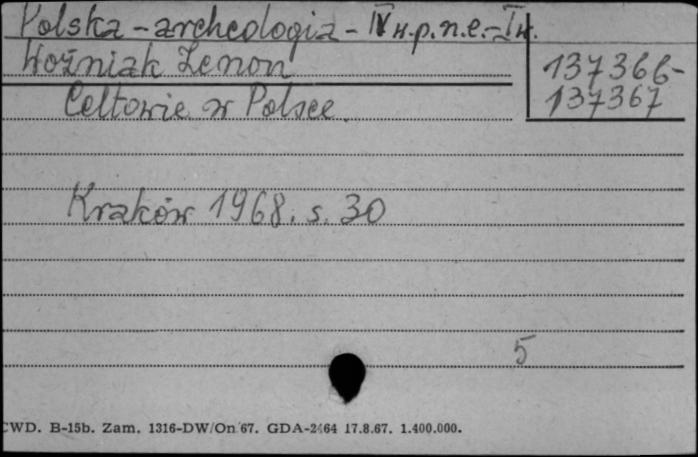 Polska - archeologia - IV w.p.n.e. - I w.
Woźniak Zenon
137366-
137367
Celtowie w Polsce
Kraków 1968. s. 30
5
CWD. B-15b. Zam. 1316-DW/On 67. GDA-2464 17.8.67. 1.400.000.